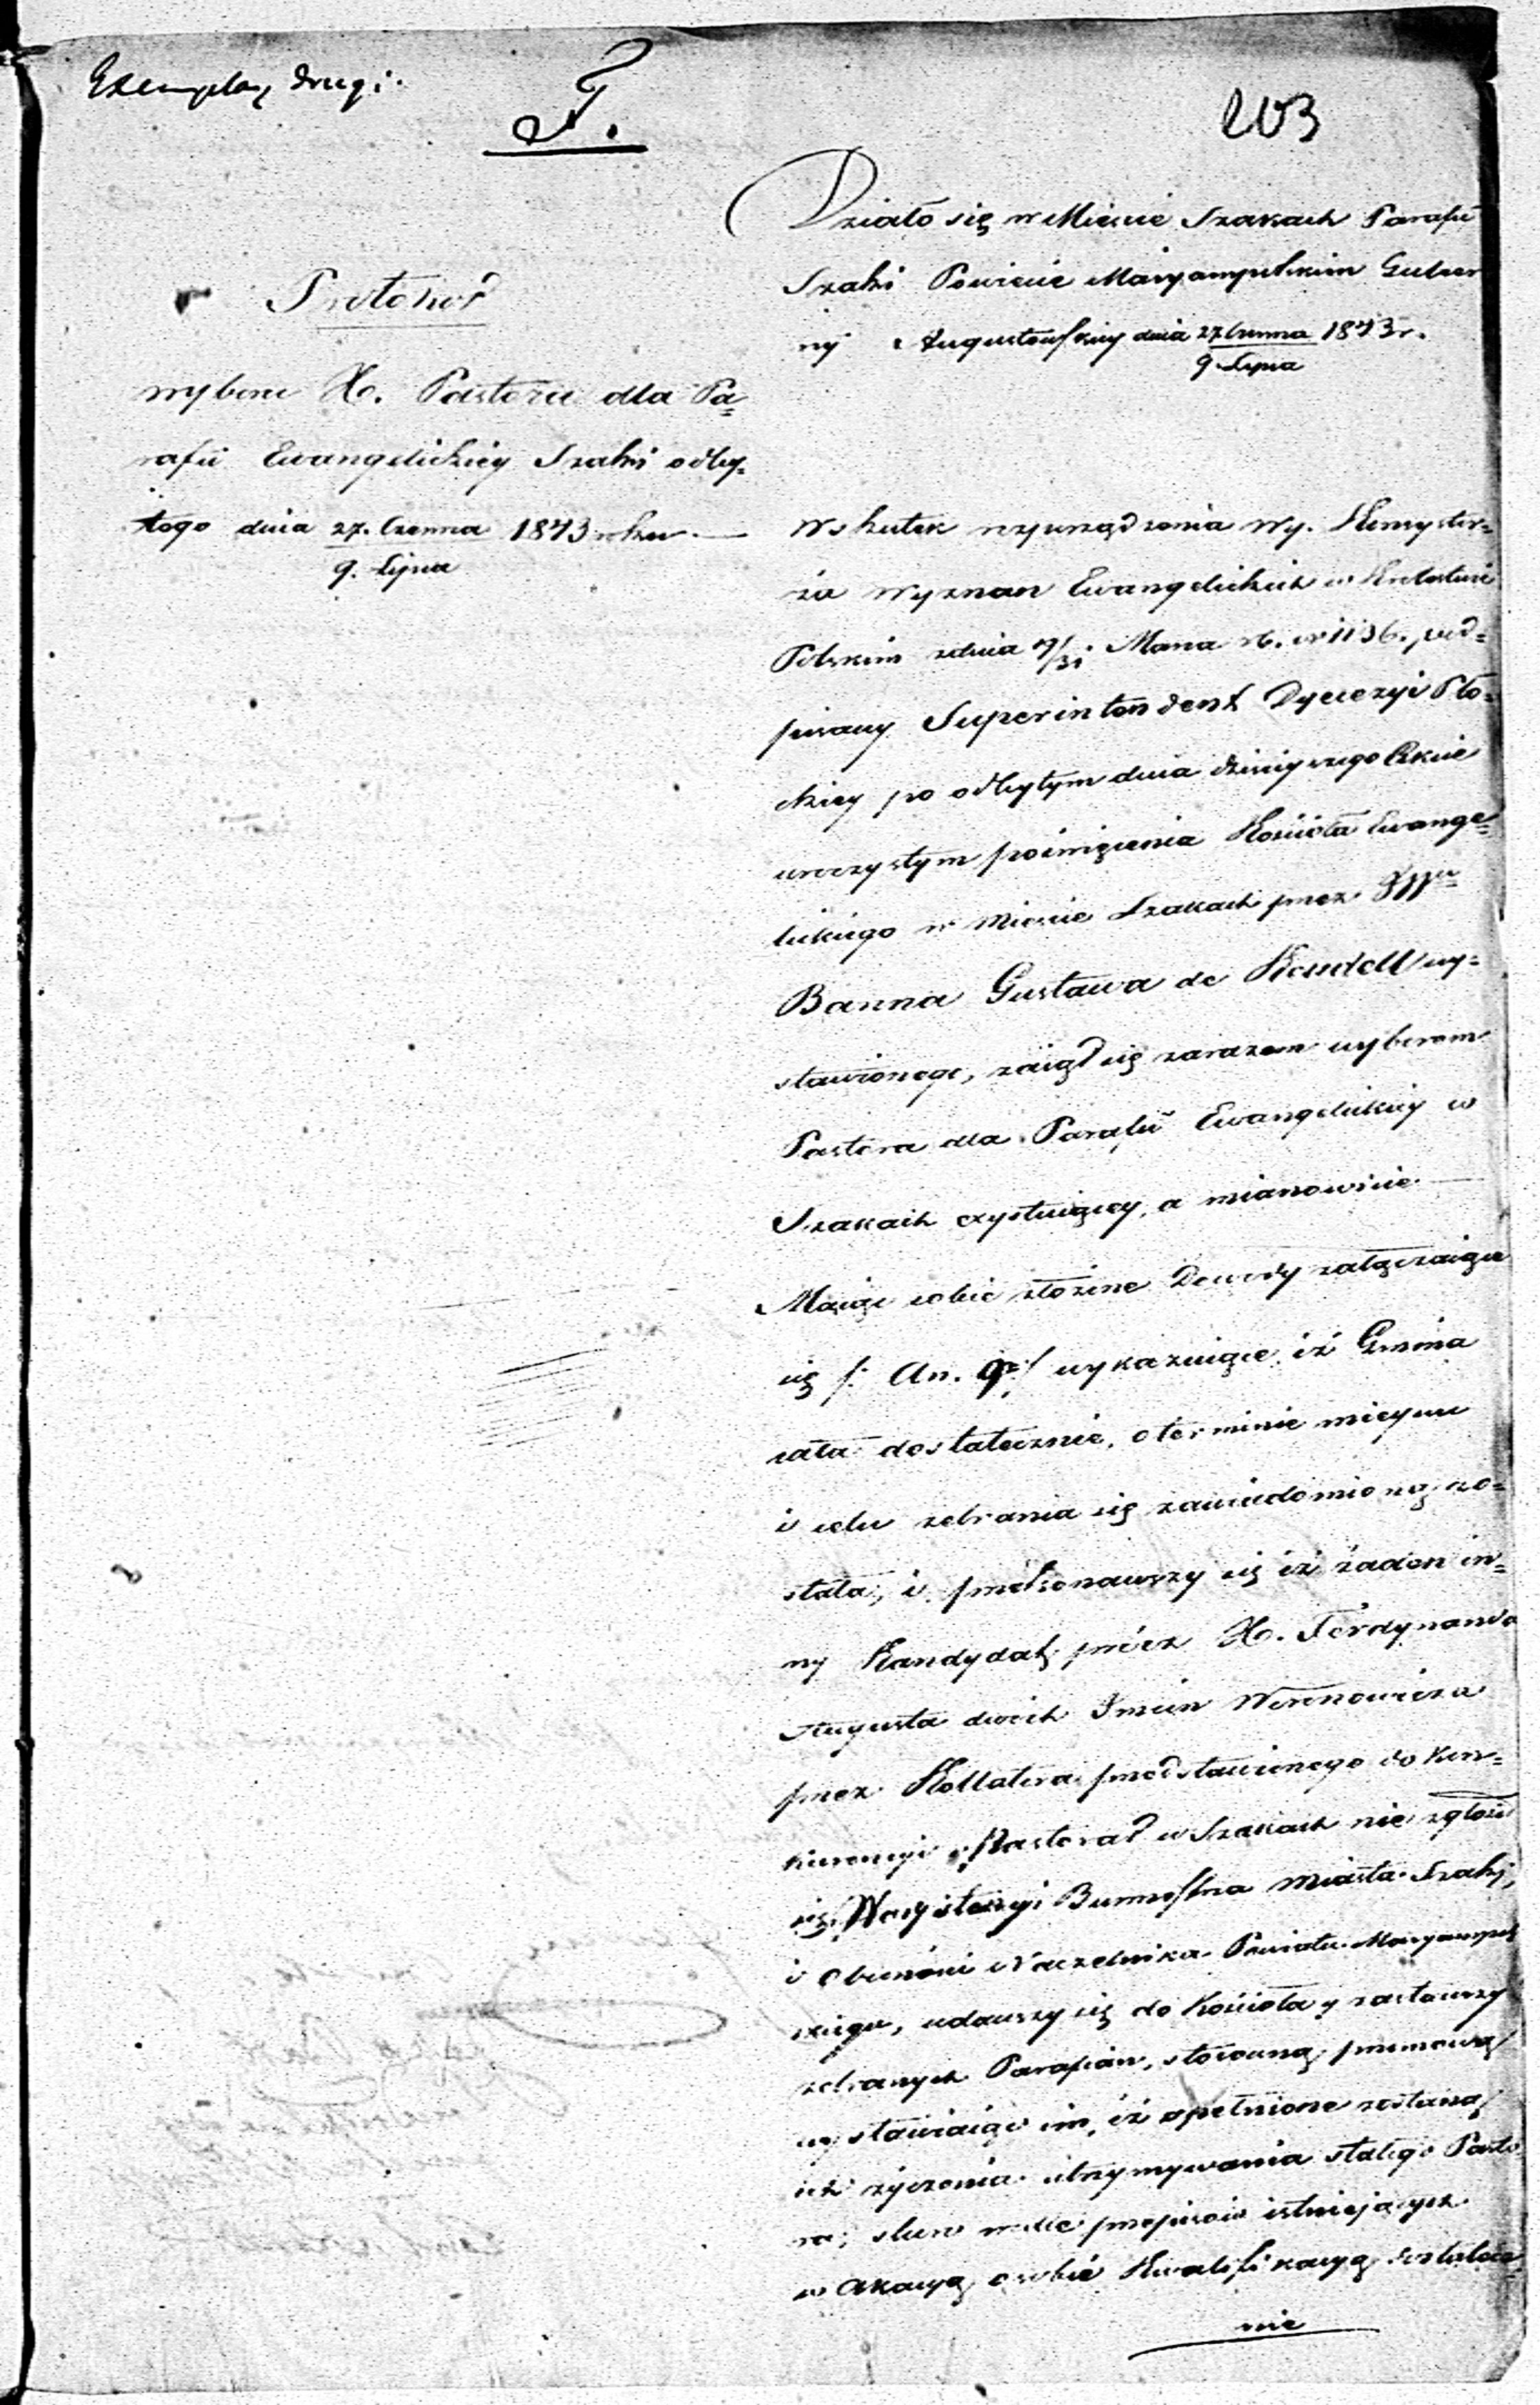 Exemplarz drugi.
F.
203
Protokół
wyboru X. Pastora dla Pa=
rafii Ewangelickiey Szaki odby=
tego dnia 27. Czerwca 1843 roku
9. Lipca
Działo się w Mieście Szakach Parafii
Szaki Powiecie Maryampolskim Guber
nij Augustowskiey dnia 27 Czerwca 1843 r.
9 Lipca
W skutek rozporządzenia Wy. Konsystor=
za Wyznań Ewangelickich w Królestwie
Polskim z dnia 19/31 Marca rb. nr 1136. pod=
pisany Superintendent Dyecezyi Pło=
ckiey po odbytym dnia dzisieyszego Akcie
uroczystym poświęcenia Kościoła Ewange=
lickiego w Mieście Szakach przez
Barona Gustawa de Keudell wy=
stawionego, zaiął się zarazem wyborem
Pastora dla Parafii Ewangelickiey w
Szakach exystuiącey, a mianowicie
Maiąc sobie złożone Dowody załączaiące
się /: An. wykazuiące, iż Gmina
cała dostatecznie, o terminie mieyscu
i celu zebrania się zawiadomioną zo=
stała; i przekonawszy się iż żaden in=
ny Kandydat prócz X. Ferdynanda
Augusta dwóch Imion Woronowicza
przez Kollatora przedstawionego do Kon=
kurencyi o Pastorał w Szakach nie zgłosił
się, W Burmistrza Miasta Szaki,
i Obecności Naczelnika Powiatu Maryampol
skiego, udawszy się do Kościoła y zastawszy
zebranych Parafian, stosowną przemową
wystawiaiąc im, iż spełnione zostaną
ich życzenia utrzymywania stałego Pasto
ra; stosownie przepisów istniejących
w osobie Kwalifikacyą dostatecz
nie